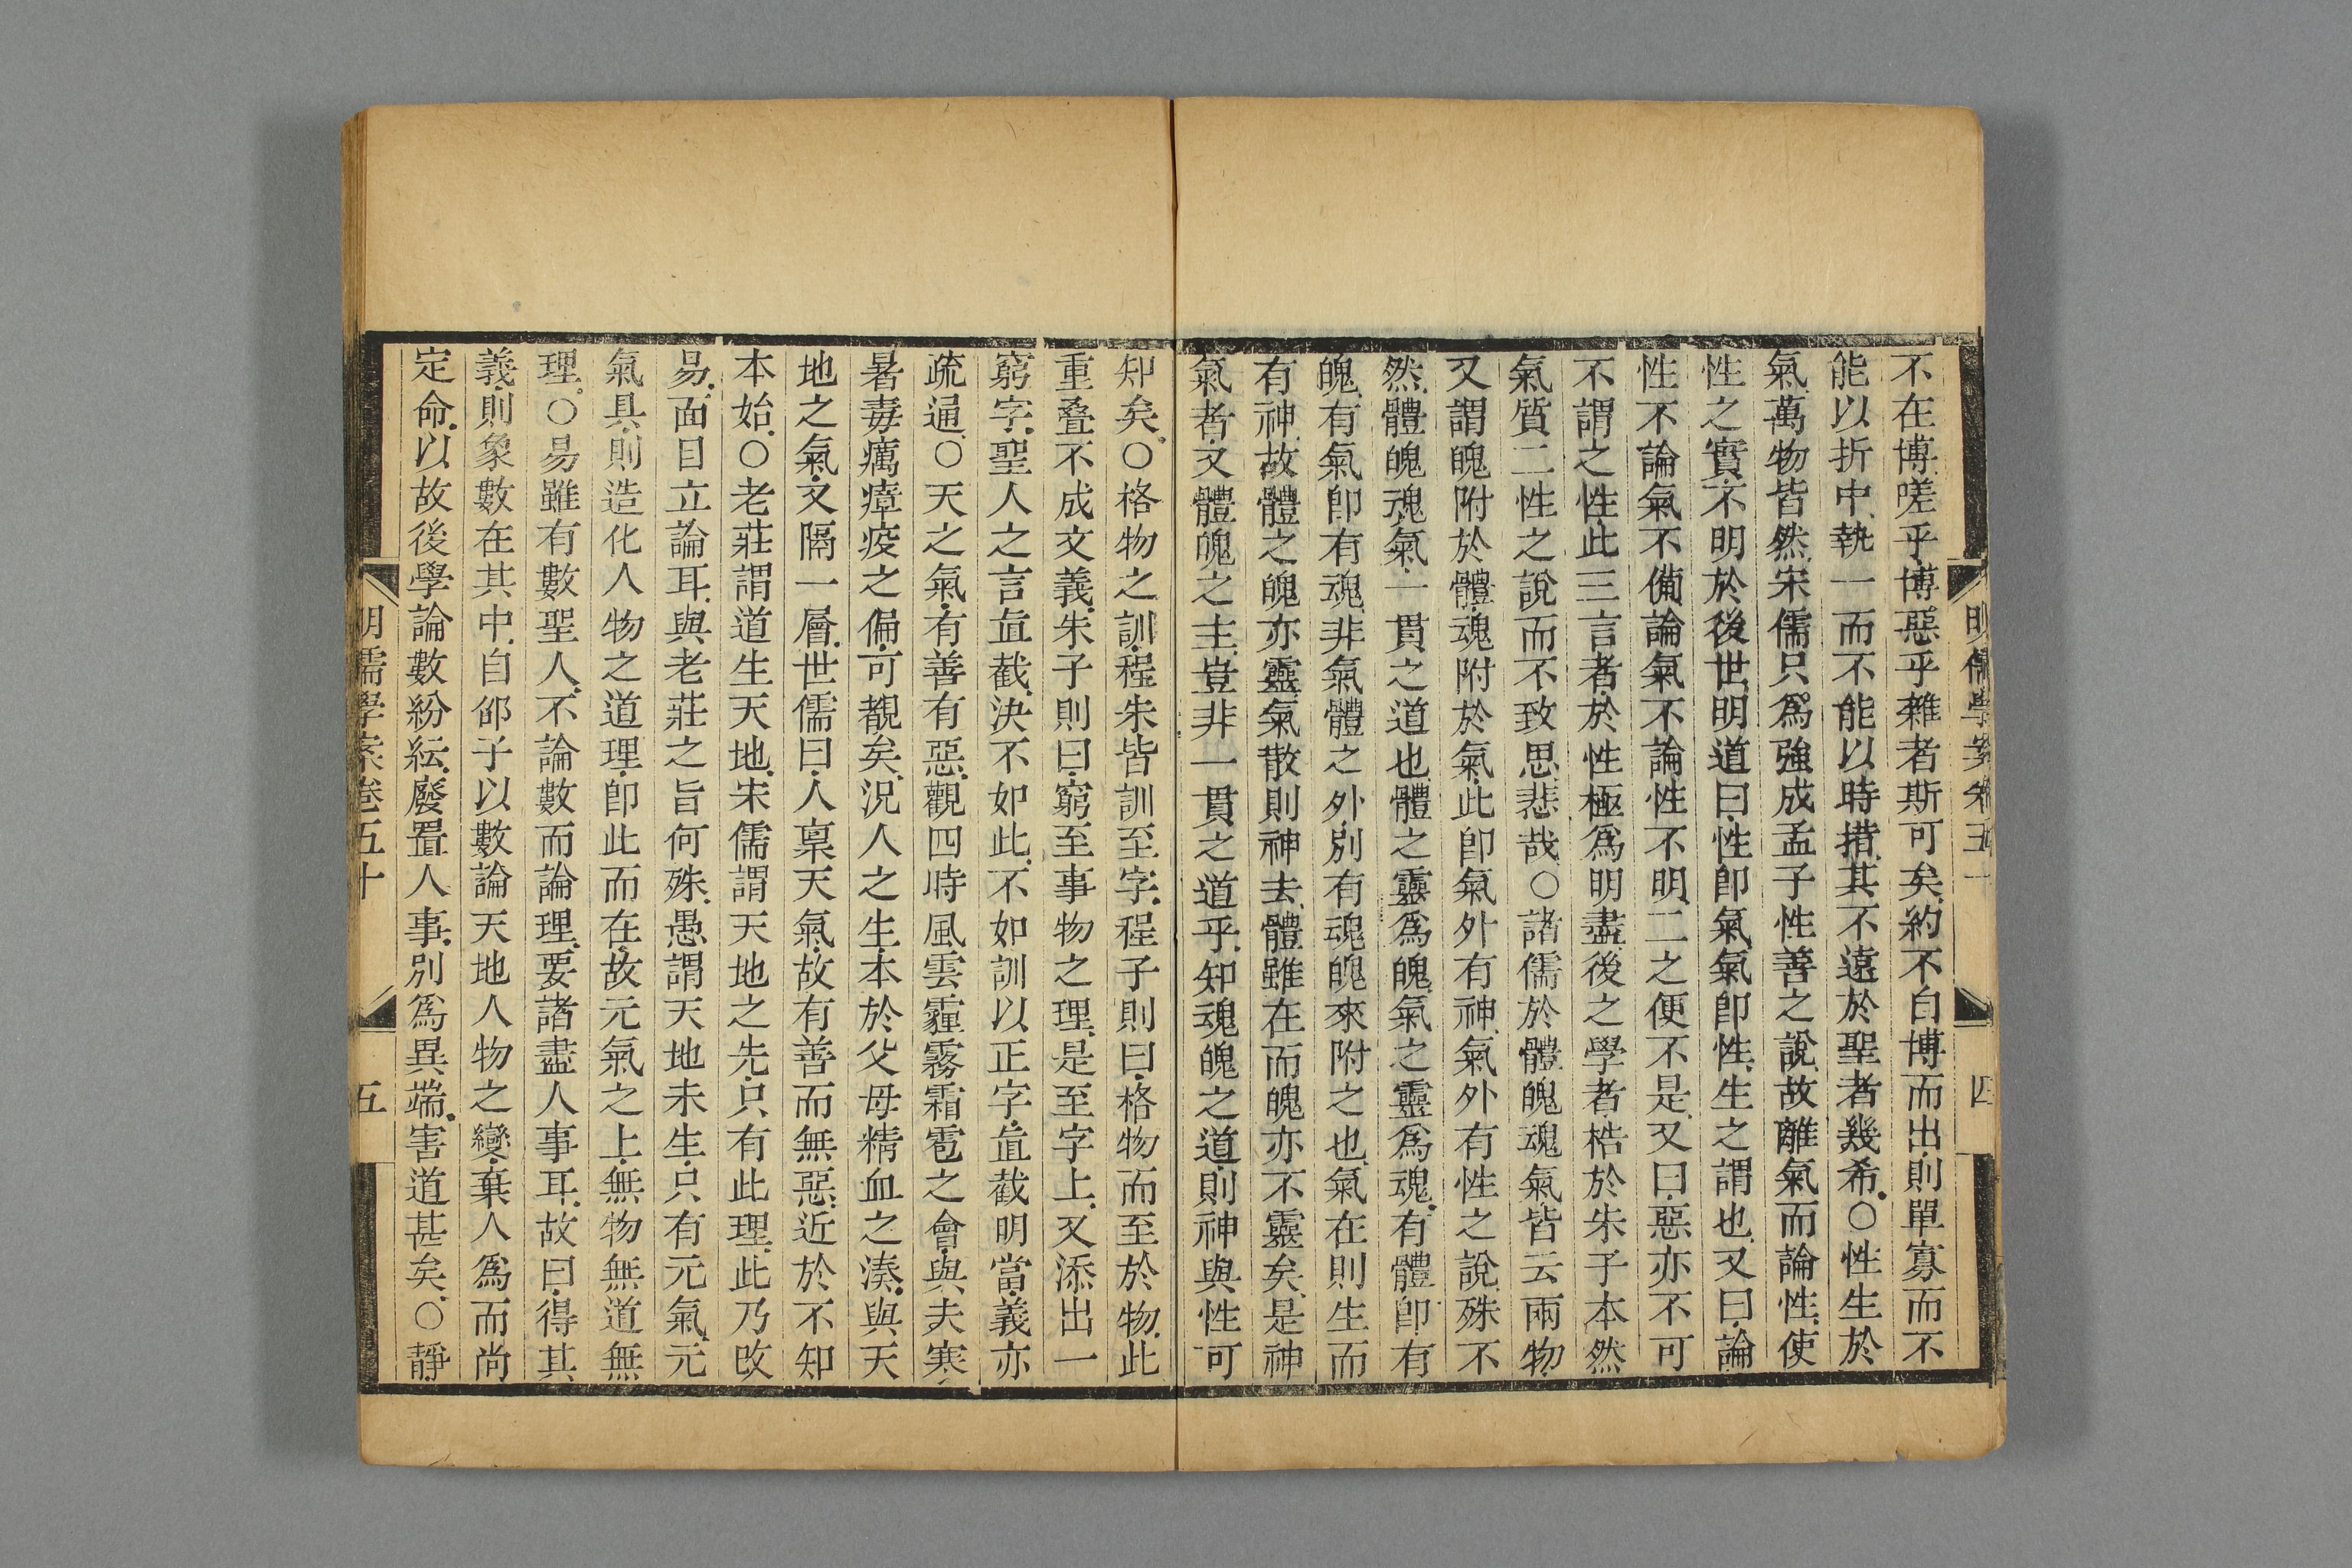 不在博嗟乎博惡乎雜者斯可矣約不自博而出則單寡而不
能以折中執一而不能以時措其不遠於聖者幾希○性生於
氣萬物皆然宋儒只爲強成孟子性善之說故離氣而論性使
性之實不明於後世明道曰性卽氣氣卽性生之謂也又曰論
性不論氣不備論氣不論性不明二之便不是又曰惡亦不可
不謂之性此三言者於性極爲明盡後之學者梏於朱子本然
氣質二性之說而不致思悲哉○諸儒於體魄魂氣皆云兩物
又謂魄附於體魂附於氣此卽氣外有神氣外有性之說殊不
然體魄魂氣一貫之道也體之靈爲魄氣之靈爲魂有體卽有
魄有氣卽有魂非氣體之外別有魂魄來附之也氣在則生而
有神故體之魄亦靈氣散則神去體雖在而魄亦不靈矣是神
氣者又體魄之主豈非一貫之道乎知魂魄之道則神與性可
知矣○格物之訓程朱皆訓至字程子則曰格物而至於物此
重疊不成文義朱子則曰窮至事物之理是至字上又添出一
窮字聖人之言直截決不如此不如訓以正字直截明當義亦
疏通○天之氣有善有惡觀四時風雲霾霧霜雹之會與夫寒
暑毒癘瘴疫之偏可覩矣況人之生本於父母精血之湊與天
地之氣又隔一層世儒曰人稟天氣故有善而無惡近於不知
本始○老莊謂道生天地宋儒謂天地之先只有此理此乃改
易面目立論耳與老莊之旨何殊愚謂天地未生只有元氣元
氣具則造化人物之道理卽此而在故元氣之上無物無道無
理○易雖有數聖人不論數而論理要諸盡人事耳故曰得其
義則象數在其中自邵子以數論天地人物之變棄人爲而尚
定命以故後學論數紛紜廢置人事別爲異端害道甚矣○靜
明儒學案卷五十
五